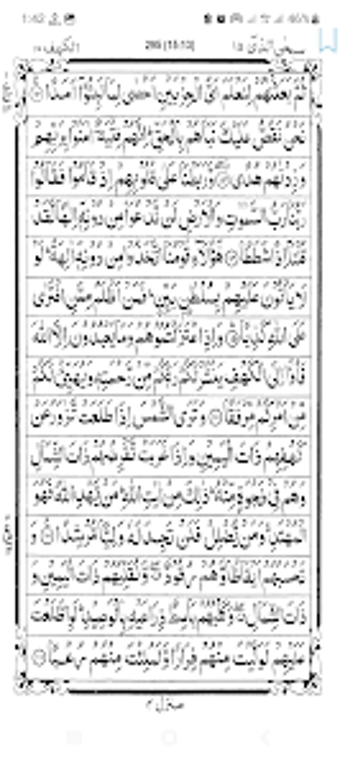 1:42
الكهف ١٨ 295 (15:13) سبحن الذى ١٥
ثُمَّ بَعَثْنٰهُمْ لِنَعْلَمَ اَىُّ الْحِزْبَيْنِ اَحْصٰى لِمَا لَبِثُوْۤا اَمَدًا ۝
نَحْنُ نَقُصُّ عَلَيْكَ نَبَاَهُمْ بِالْحَقِّ ؕ اِنَّهُمْ فِتْيَةٌ اٰمَنُوْا بِرَبِّهِمْ
وَزِدْنٰهُمْ هُدًى ۝ وَّرَبَطْنَا عَلٰى قُلُوْبِهِمْ اِذْ قَامُوْا فَقَالُوْا
رَبُّنَا رَبُّ السَّمٰوٰتِ وَالْاَرْضِ لَنْ نَّدْعُوَا مِنْ دُوْنِهٖۤ اِلٰهًا لَّقَدْ
قُلْنَاۤ اِذًا شَطَطًا ۝ هٰۤؤُلَآءِ قَوْمُنَا اتَّخَذُوْا مِنْ دُوْنِهٖۤ اٰلِهَةً ؕ لَوْ
لَا يَاْتُوْنَ عَلَيْهِمْ بِسُلْطٰنٍۭ بَيِّنٍ ؕ فَمَنْ اَظْلَمُ مِمَّنِ افْتَرٰى
عَلَى اللّٰهِ كَذِبًا ۝ وَاِذِ اعْتَزَلْتُمُوْهُمْ وَمَا يَعْبُدُوْنَ اِلَّا اللّٰهَ
فَاْوٗۤا اِلَى الْكَهْفِ يَنْشُرْ لَكُمْ رَبُّكُمْ مِّنْ رَّحْمَتِهٖ وَيُهَيِّئْ لَكُمْ
مِّنْ اَمْرِكُمْ مِّرْفَقًا ۝ وَتَرَى الشَّمْسَ اِذَا طَلَعَتْ تَّزٰوَرُ عَنْ
كَهْفِهِمْ ذَاتَ الْيَمِيْنِ وَاِذَا غَرَبَتْ تَّقْرِضُهُمْ ذَاتَ الشِّمَالِ
وَهُمْ فِىْ فَجْوَةٍ مِّنْهُ ؕ ذٰلِكَ مِنْ اٰيٰتِ اللّٰهِ ؕ مَنْ يَّهْدِ اللّٰهُ فَهُوَ
الْمُهْتَدِ ۚ وَمَنْ يُّضْلِلْ فَلَنْ تَجِدَ لَهٗ وَلِيًّا مُّرْشِدًا ۝ وَ
تَحْسَبُهُمْ اَيْقَاظًا وَّهُمْ رُقُوْدٌ ۖ وَّنُقَلِّبُهُمْ ذَاتَ الْيَمِيْنِ وَ
ذَاتَ الشِّمَالِ ۖ وَكَلْبُهُمْ بَاسِطٌ ذِرَاعَيْهِ بِالْوَصِيْدِ ؕ لَوِ اطَّلَعْتَ
عَلَيْهِمْ لَوَلَّيْتَ مِنْهُمْ فِرَارًا وَّلَمُلِئْتَ مِنْهُمْ رُعْبًا ۝
منزل ٤